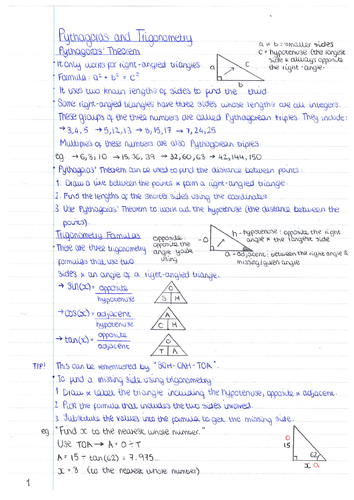 Pythagoras and Trigonometry
Pythagoras' Theorem
a & b = smaller sides
c = hypotenuse (the longest side & always opposite the right-angle)
a
c
b
• It only works for right-angled triangles
• Formula: a² + b² = c²
• It uses two known lengths of sides to find the third.
• Some right-angled triangles have three sides whose lengths are all integers.
These groups of the three numbers are called Pythagorean triples. They include:
→ 3,4,5 → 5,12,13 → 8,15,17 → 7,24,25
Multiples of these numbers are also Pythagorean triples.
eg → 6,8,10 → 15,36,39 → 32,60,68 → 42,144,150
• Pythagoras' Theorem can be used to find the distance between points:
1. Draw a line between the points & form a right-angled triangle.
2. Find the lengths of the shorter sides using the coordinates.
3. Use Pythagoras' Theorem to work out the hypotenuse (the distance between the
points).
Trigonometry Formulas
• There are three trigonometry
formulas that use two
sides & an angle of a right-angled triangle.
opposite:
opposite the
angle you're
using
- o
h - hypotenuse: opposite the right
angle & the longest side
a - adjacent: between the right angle &
missing/given angle
→ sin(x) = opposite
hypotenuse
O
S H
→ cos(x) = adjacent
hypotenuse
A
C H
→ tan(x) = opposite
adjacent
O
T A
TIP! This can be remembered by "SOH-CAH-TOA".
• To find a missing side using trigonometry:
1. Draw & label the triangle including the hypotenuse, opposite & adjacent.
2. Pick the formula that includes the two sides involved.
3. Substitute the values into the formula to get the missing side.
eg "Find x to the nearest whole number."
Use TOA → A = O ÷ T
A = 15 ÷ tan(62) = 7.975...
x = 8 (to the nearest whole number)
O
15
62
x a
1